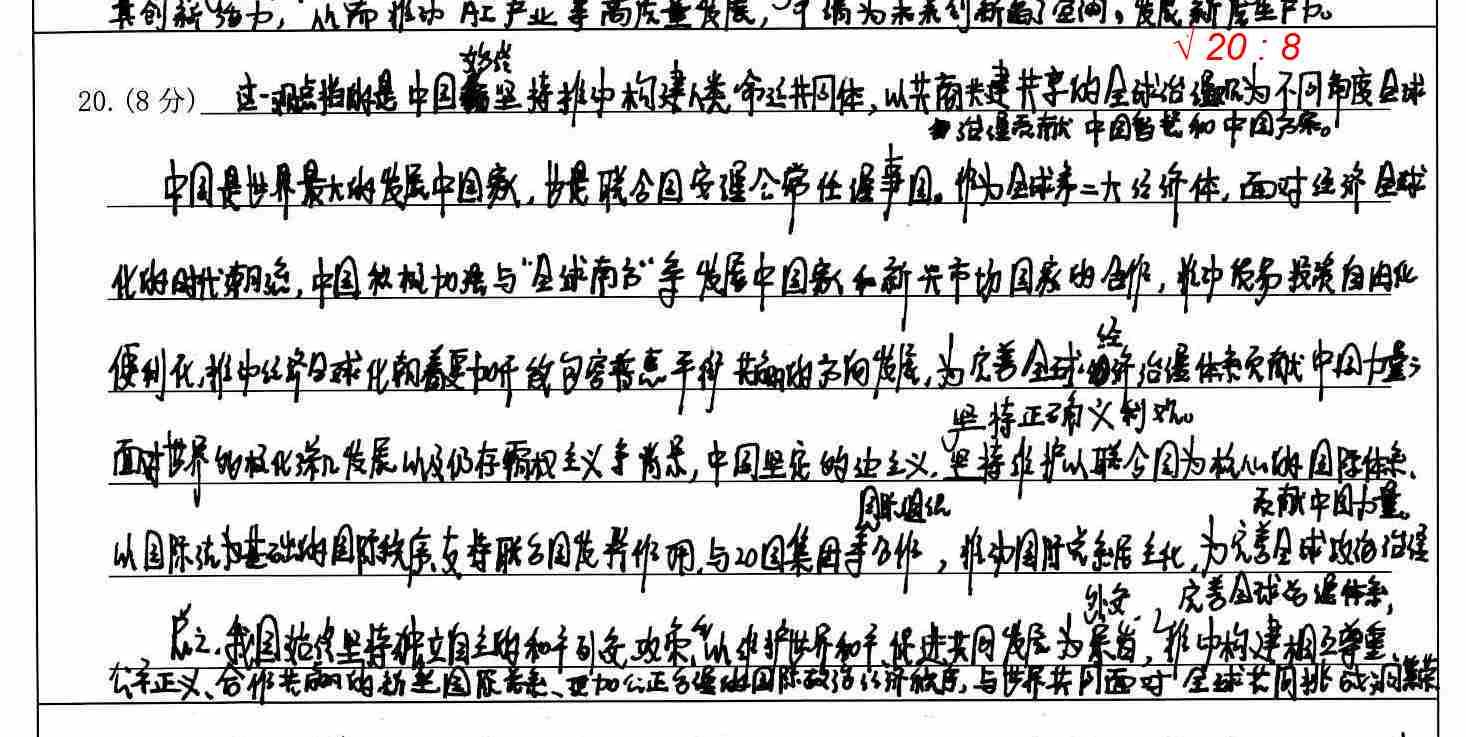 其创新活力，从而推动AI产业等高质量发展，为未来创新留了空间，发展新质生产力。
√ 20 : 8
始终
20. (8 分) 这一观点指的是中国坚持推动构建人类命运共同体，以共商共建共享的全球治理观为不同角度全球
治理贡献中国智慧和中国方案。
中国是世界最大的发展中国家，也是联合国安理会常任理事国。作为全球第二大经济体，面对经济全球
化的时代潮流，中国积极加强与“全球南方”等发展中国家和新兴市场国家的合作，推动贸易投资自由化
经
便利化，推动经济全球化朝着更加开放包容普惠平衡共赢的方向发展，为完善全球济治理体系贡献中国力量；
坚持正确义利观。
面对世界多极化深入发展以及仍存霸权主义等背景，中国坚定多边主义，坚持维护以联合国为核心的国际体系、
国际组织 贡献中国力量。
以国际法为基础的国际秩序，支持联合国发挥作用，与20国集团等合作，推动国际关系民主化，为完善全球政治治理
外交 完善全球治理体系，
总之，我国始终坚持独立自主的和平外交政策，以维护世界和平促进共同发展为宗旨，推动构建相互尊重、
公平正义、合作共赢的新型国际关系、更加公正合理的国际政治经济秩序，与世界共同面对全球共同挑战，共同繁荣